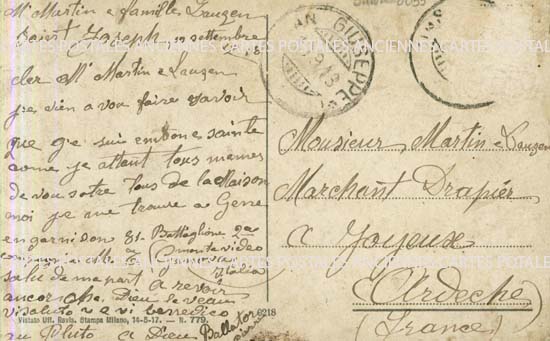 Mr Martin e famille Lauzen
Saint Joseph 12 settembre
cler Mr Martin e Lauzen
je vien a vou faire savoir
que ge sui em bone sainte
come je attant tous mames
de vou votre tous de la Maison
moi je me trouve a Gene
en garnison 81. Battaglione 2a
montevideo
Italia
salu de ma part a revoir
ancor che Dieu le veau
vi saluto e vi benedico
au Pluto a Dieu Ballator
Vistato Uff. Revis. Stampa Milano, 14-5-17. — N. 779.
6218
SAN GIUSEPPE
Monsieur Martin e Lauzen
Marchant Drapiér
a Joyeux
Ardeche
(France)
CARTES POSTALES ANCIENNES CARTES POSTALES ANCIENNES CARTES POSTALES